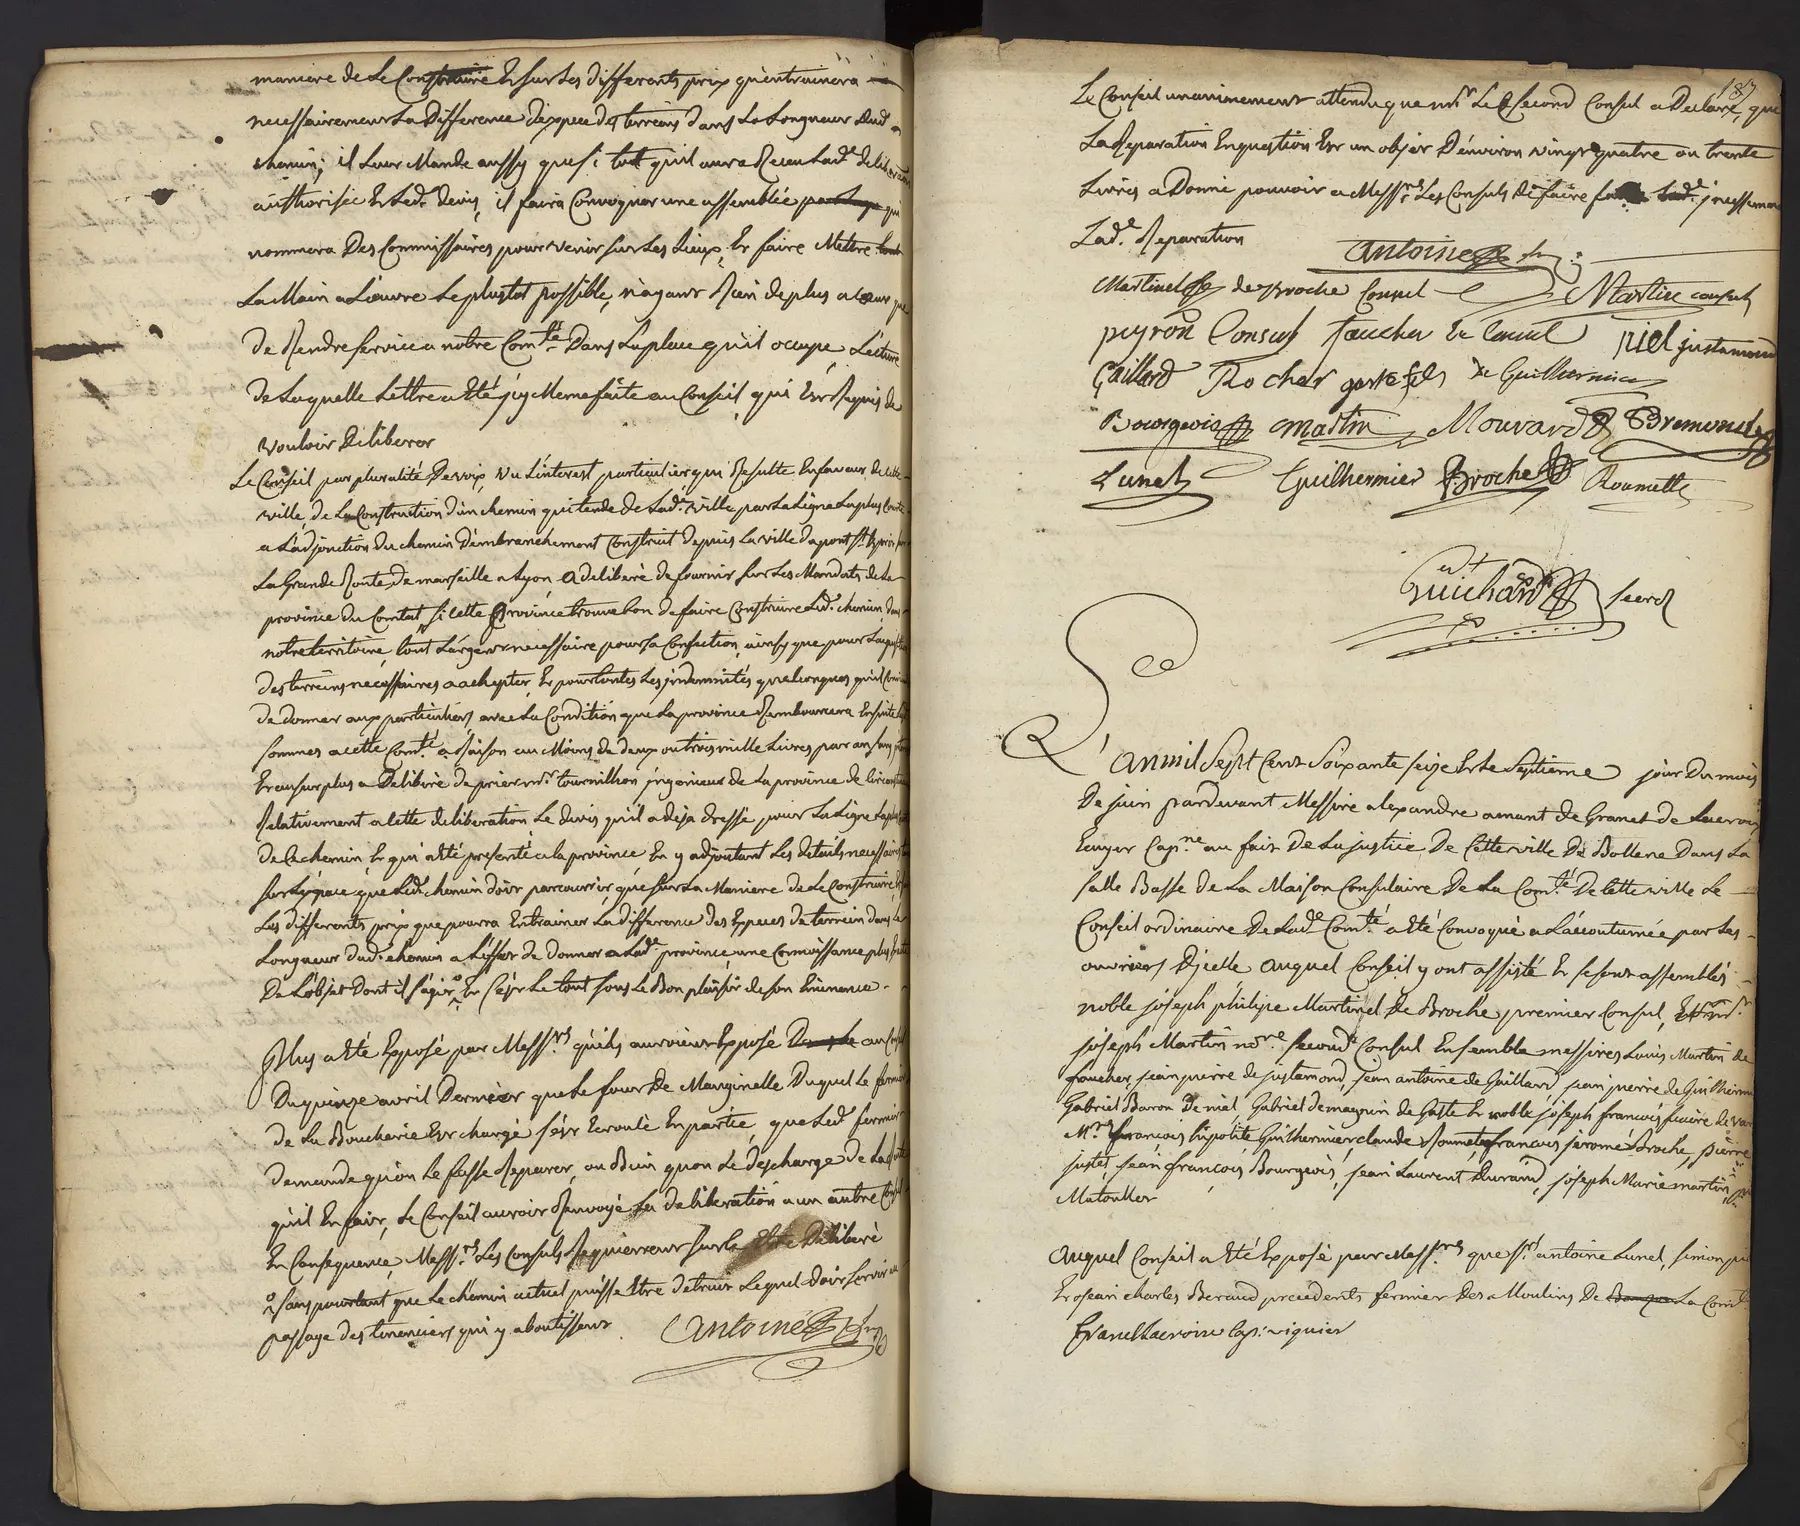 maniere de le Construire Et sur les differents prix qu'entrainera
necessairement la Difference d'espece des terreins dans la Longueur dud.
chemin; il Leur Mande aussy que si tost quil aura Receu Lad.e deliberation
authorisée Et led. devis, il faira Convoquer une assemblée qui
nommera Des Commissaires pour venir sur les Lieux, Et faire Mettre
La Main a L'œuvre Le plustot possible, n'ayant Rien de plus a cœur que
de Rendre service a notre Com.té Dans La place qu'il occupe, Lecture
de Laquelle Lettre a Eté jcy Meme faite au Conseil qui Est Requis de
Vouloir Deliberer
Le Conseil par pluralité De voix, vu L'interest particulier qui Resulte En faveur de cette
ville, de La Construction d'un chemin qui tende de Lad.e ville par La Ligne La plus Courte
a L'adjonction du chemin D'embranchement Construit depuis La ville du pont S.t Esprit
La Grande Route de marseille a Lyon, a deliberé de fournir sur Les Mandats de La
province du Comtat si cette Province trouve bon de faire Construire Led. chemin dans
notre territoire, tout L'argent necessaire pour sa Confection, ainsy que pour
des terreins necessaires a achepter, Et pour toutes Les jndemnités quelconques qu'il
de donner aux particuliers avec La Condition que La province Rembourcera Ensuite
sommes a cette Com.té a Raison au Moins de deux ou trois mille Livres par an
Et au surplus a Deliberé de prier m.r tournillhon jngenieur de La province de
Relativement a cette deliberation Le devis qu'il a deja dressé pour La Ligne
de Ce chemin, Et qui a Eté presenté a La province En y adjoutant Les details necessaires
sur L'espace que Led. chemin doit parcourrir, que sur La Maniere de Le Construire, Et
Les differents prix que pourra Entrainer La difference des Especes de terrein dans La
Longueur dud. chemin a L'effet de donner a Lad.e province une Connoissance plus
De L'objet dont il s'agit, Et C'est Le tout sous Le Bon plaisir de son Eminence.
Plus a Eté Exposé par Mess.rs qu'ils auroient Exposé au Conseil
Du quinze avril Dernier que Le four De Manginelle Duquel Le fermier
de La Boucherie Est chargé s'est Ecroulé En partie, que Led. fermier
demande qu'on Le fasse Reparer, ou Bien qu'on Le descharge de La
qu'il En fait, Le Conseil auroit Renvoyé La deliberation a un autre Conseil
En Consequence, Mess.rs Les Consuls Requierrent sur Ce Etre Deliberé
sans pourtant que Le chemin actuel puisse Etre detruit Lequel doit servir au
passage des tenanciers qui y aboutissent
Antoine
187
Le Conseil unanimement attendu que m.r Le second Consul a Declaré, que
La Reparation En question Est un objet D'environ vingt quatre ou trente
Livres a Donné pouvoir a Mess.rs Les Consuls de faire faire jncessament
Lad.e Reparation
Antoine
Martinel de Broche Consul Martin consul
peyron Consul faucher Riel justamond
Gaillard Rocher gaste fils de Guilhermier
Bourgeois martin Mouvard Bremond
Lunel Guilhermier Broche Roumette
Guichard secrd
L'an mil Sept Cent Soixante seize Et Le Septieme jour Du mois
De juin pardevant Messire alexandre amant de Granet de Lacroix
Ecuyer Cap.ne au fait De La justice De Cette ville De Bollene Dans La
salle Basse de La Maison Consulaire De La Com.té De Cette ville Le
Conseil ordinaire De Lad.e Com.té a Eté Convoqué a L'acoutumée par Les
ouvriers D'jcelle auquel Conseil y ont assisté Et se sont assemblés
noble joseph philipe Martinel De Broche premier Consul, Et m.r
joseph Martin no.re second Consul Ensemble messires Louis Martin de
faucher, jean pierre de justamond, jean antoine de Gaillard jean pierre de Guilhermier
Gabriel Baron De niel, Gabriel de magnin de Gaste Et noble joseph francois
M.rs francois hipolite Guilhermier, claude Roumette francois jeromé Broche, pierre
justet, jean francois Bourgeois, jean Laurent Durand, joseph Marie martin,
Matouller
Auquel Conseil a Eté Exposé par Mess.rs que s.r antoine Lunel, simon
Et jean charles Beraud precedents fermier Des Moulins De La Com.té
Granet Lacroix Cap. viguier